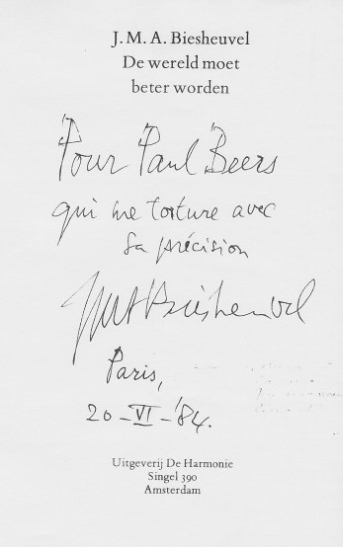 J. M. A. Biesheuvel
De wereld moet
beter worden
Pour Paul Beers
qui me torture avec
sa précision
JMABiesheuvel
Paris,
20-VI-'84.
Uitgeverij De Harmonie
Singel 390
Amsterdam